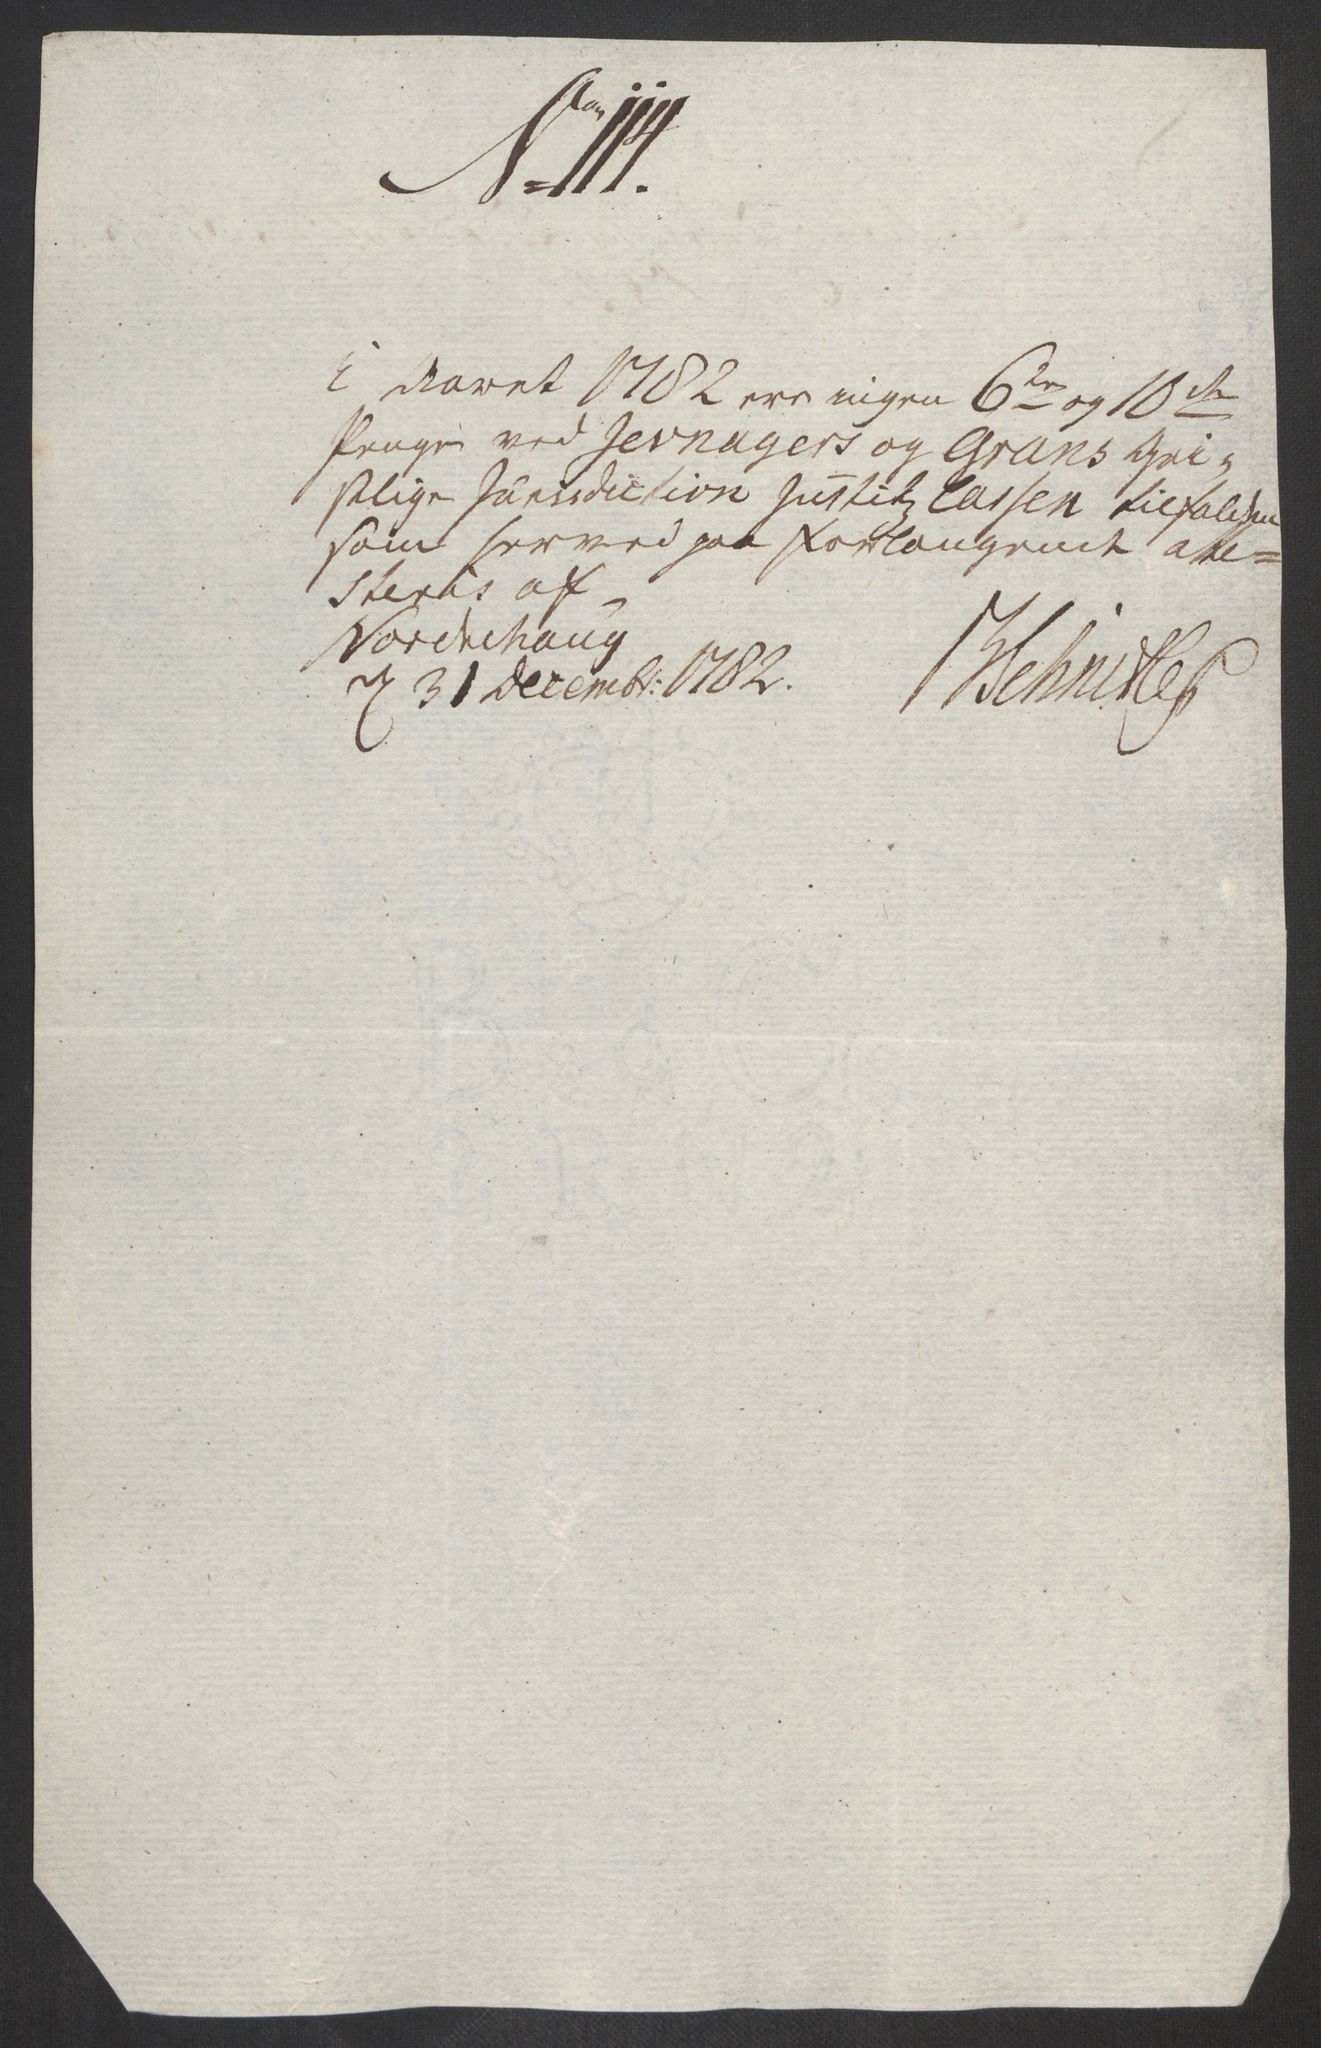 No 114.
I Aaret 1782 ere ingen 6te og 10de
Penge ved Jevnagers og Grans Gei-
stlige Jurisdiction Justitz Cassen tilfalden
som herved paa Forlangende atte-
steris af
Nordrehaug
d 31 Decembr: 1782.